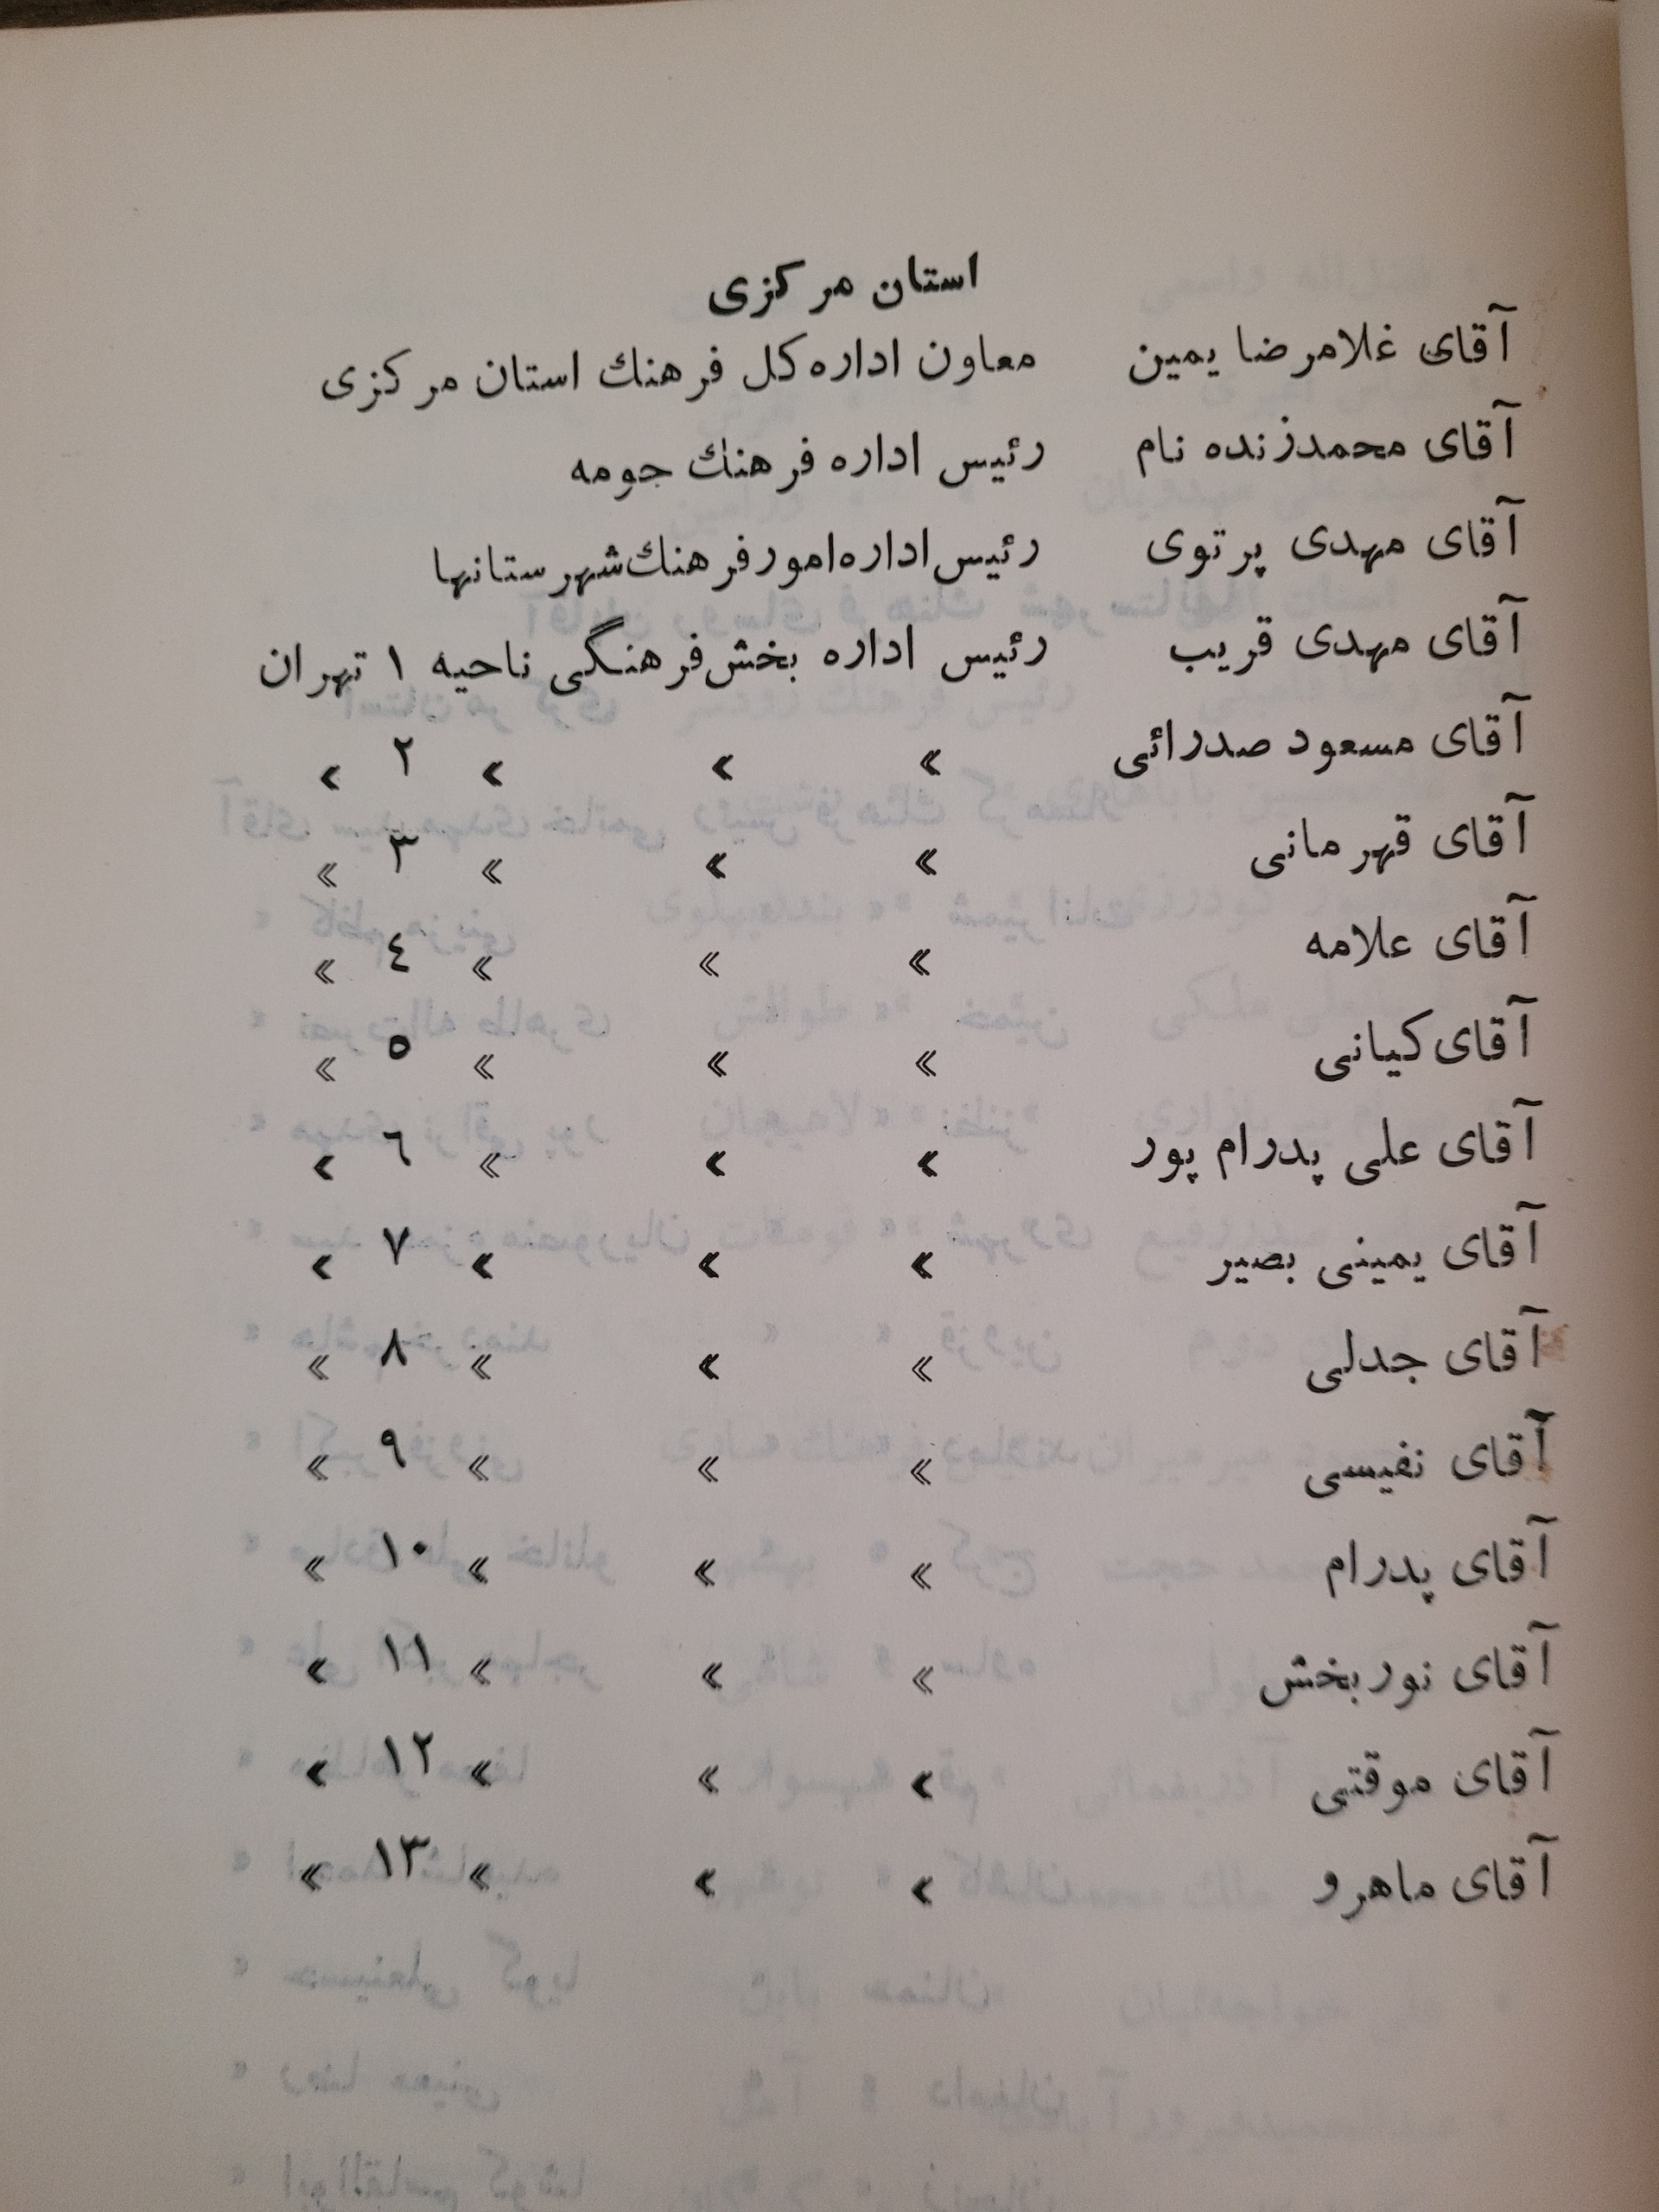 استان مرکزی
آقای غلامرضا یمین معاون اداره کل فرهنك استان مرکزی
آقای محمدزنده نام رئیس اداره فرهنك جومه
آقای مهدی پرتوی رئیس اداره امور فرهنك شهرستانها
آقای مهدی قریب رئیس اداره بخش فرهنگی ناحیه ۱ تهران
آقای مسعود صدرائی » » » ۲ »
آقای قهرمانی » » » ۳ »
آقای علامه » » » ٤ »
آقای کیانی » » » ٥ »
آقای علی پدرام پور » » » ٦ »
آقای یمینی بصیر » » » ۷ »
آقای جدلی » » » ۸ »
آقای نفیسی » » » ۹ »
آقای پدرام » » » ۱۰ »
آقای نوربخش » » » ۱۱ »
آقای موقتی » » » ۱۲ »
آقای ماهرو » » » ۱۳ »